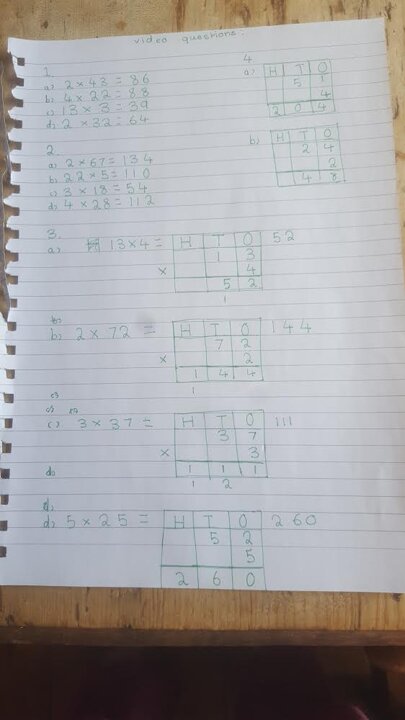 video questions.
1.
a) 2 × 43 = 86
b) 4 × 22 = 88
c) 13 × 3 = 39
d) 2 × 32 = 64
2.
a) 2 × 67 = 134
b) 22 × 5 = 110
c) 3 × 18 = 54
d) 4 × 28 = 112
3.
a) 13 × 4 = H T O 52
1 3
× 4
5 2
1
b) 2 × 72 = H T O 144
7 2
× 2
1 4 4
1
c) 3 × 37 = H T O 111
3 7
× 3
d) 1 1 1
1 2
d)
d) 5 × 25 = H T O 260
5 2
5
2 6 0
4
a) H T O
5 1
4
2 0 4
b) H T O
2 4
2
4 8